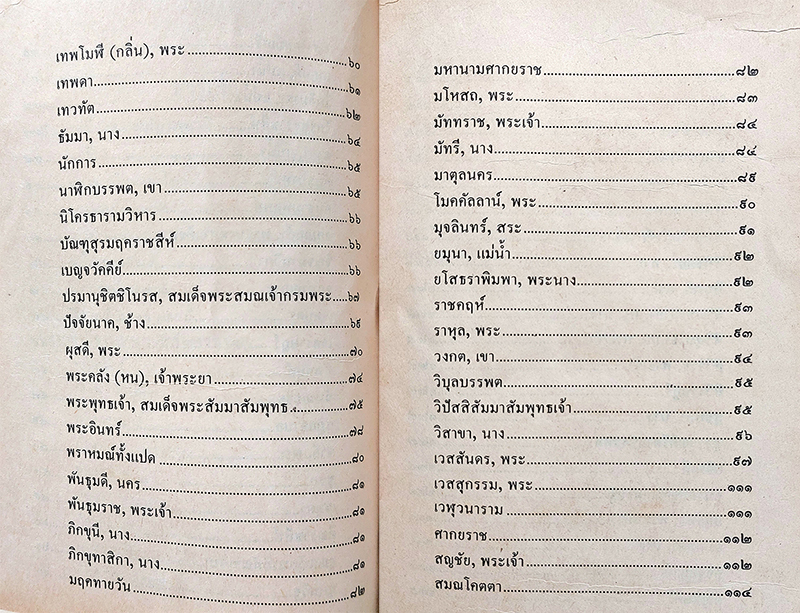 เทพโมฬี (กลิ่น), พระ ๖๐
เทพดา ๖๑
เทวทัต ๖๒
ธัมมา, นาง ๖๔
นักการ ๖๕
นาฬิกบรรพต, เขา ๖๕
นิโครธารามวิหาร ๖๖
บัณฑุสุรมฤคราชสีห์ ๖๖
เบญจวัคคีย์ ๖๖
ปรมานุชิตชิโนรส, สมเด็จพระสมณเจ้ากรมพระ ๖๗
ปัจจัยนาค, ช้าง ๖๙
ผุสดี, พระ ๗๐
พระคลัง (หน), เจ้าพระยา ๗๔
พระพุทธเจ้า, สมเด็จพระสัมมาสัมพุทธ ๗๕
พระอินทร์ ๗๘
พราหมณ์ทั้งแปด ๘๐
พันธุมดี, นคร ๘๑
พันธุมราช, พระเจ้า ๘๑
ภิกขุนี, นาง ๘๑
ภิกขุทาสิกา, นาง ๘๑
มฤคทายวัน ๘๒
มหานามศากยราช ๘๒
มโหสถ, พระ ๘๓
มัททราช, พระเจ้า ๘๔
มัทรี, นาง ๘๔
มาตุลนคร ๘๙
โมคคัลลาน์, พระ ๙๐
มุจลินทร์, สระ ๙๑
ยมุนา, แม่น้ำ ๙๒
ยโสธราพิมพา, พระนาง ๙๒
ราชคฤห์ ๙๓
ราหุล, พระ ๙๓
วงกต, เขา ๙๔
วิบุลบรรพต ๙๕
วิปัสสิสัมมาสัมพุทธเจ้า ๙๕
วิสาขา, นาง ๙๖
เวสสันดร, พระ ๙๗
เวสสุกรรม, พระ ๑๑๑
เวฬุวนาราม ๑๑๑
ศากยราช ๑๑๒
สญชัย, พระเจ้า ๑๑๒
สมณโคตตา ๑๑๔